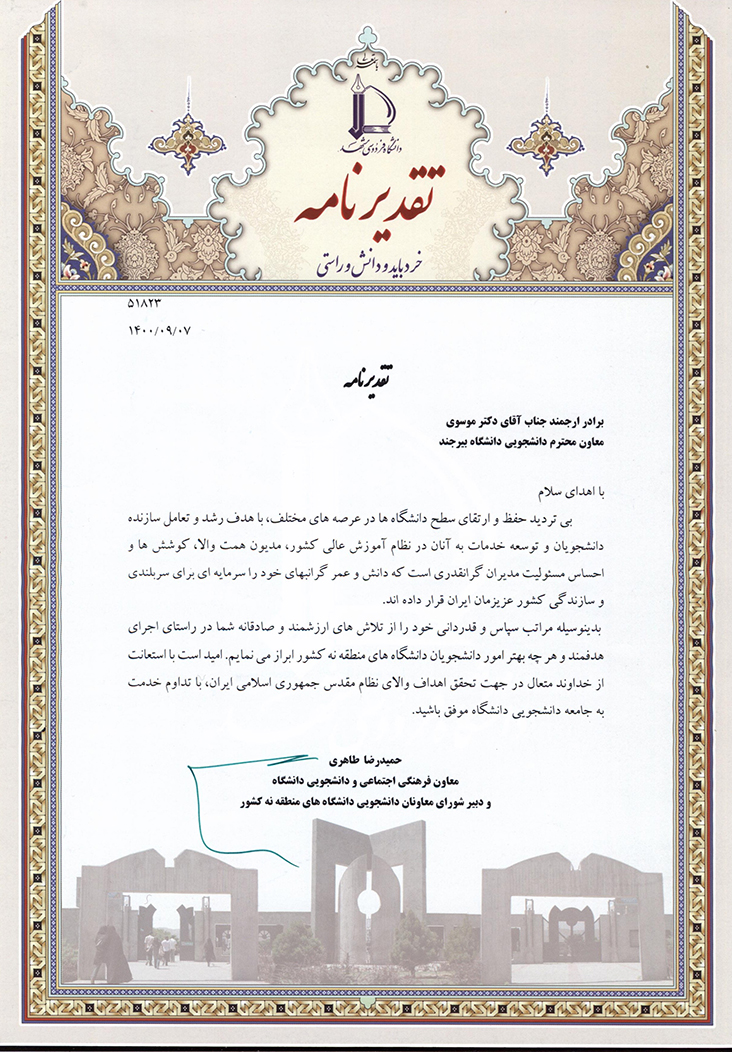 باسمه تعالی
دانشگاه فردوسی مشهد
تقدیرنامه
خرد باید و دانش و راستی
۵۱۸۲۳
۱۴۰۰/۰۹/۰۷
تقدیرنامه
برادر ارجمند جناب آقای دکتر موسوی
معاون محترم دانشجویی دانشگاه بیرجند
با اهدای سلام
بی تردید حفظ و ارتقای سطح دانشگاه ها در عرصه های مختلف، با هدف رشد و تعامل سازنده
دانشجویان و توسعه خدمات به آنان در نظام آموزش عالی کشور، مدیون همت والا، کوشش ها و
احساس مسئولیت مدیران گرانقدری است که دانش و عمر گرانبهای خود را سرمایه ای برای سربلندی
و سازندگی کشور عزیزمان ایران قرار داده اند.
بدینوسیله مراتب سپاس و قدردانی خود را از تلاش های ارزشمند و صادقانه شما در راستای اجرای
هدفمند و هر چه بهتر امور دانشجویان دانشگاه های منطقه نه کشور ابراز می نمایم. امید است با استعانت
از خداوند متعال در جهت تحقق اهداف والای نظام مقدس جمهوری اسلامی ایران، با تداوم خدمت
به جامعه دانشجویی دانشگاه موفق باشید.
حمیدرضا طاهری
معاون فرهنگی اجتماعی و دانشجویی دانشگاه
و دبیر شورای معاونان دانشجویی دانشگاه های منطقه نه کشور